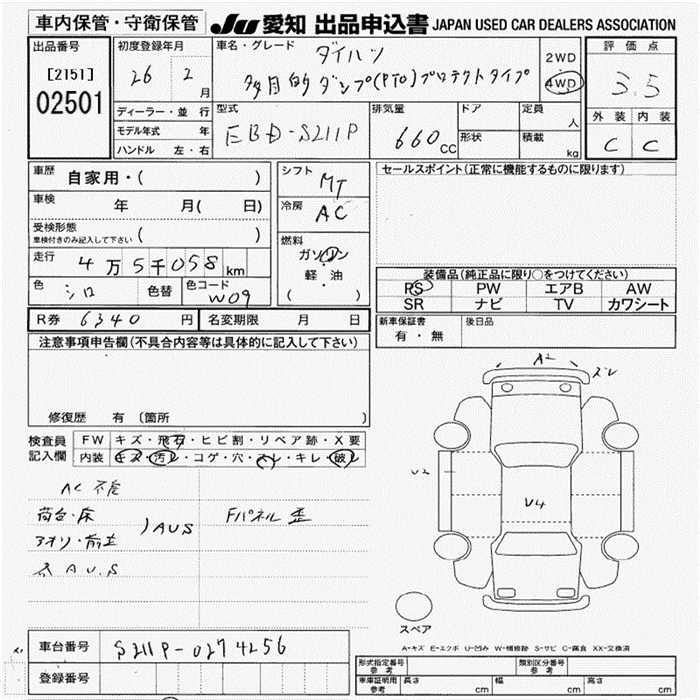 車内保管・守衛保管 JU 愛知 出品申込書 JAPAN USED CAR DEALERS ASSOCIATION
出品番号 初度登録年月 車名・グレード ダイハツ 2WD 評価点
[2151] 26 2 月 多目的ダンプ(PTO)プロテクトタイプ 4WD 3.5
02501 ディーラー・並行 型式 排気量 ドア 定員 人 外装 内装
モデル年式 年 EBD-S211P 660cc 形状 積載 C C
ハンドル 左・右 kg
車歴 自家用・( ) シフト MT セールスポイント(正常に機能するものに限ります)
車検 年 月( 日) 冷房 AC
受検形態 ( )
車検付きのみ記入して下さい
燃料
走行 4万5千058km ガソリン
軽・油 装備品(純正品に限り○をつけてください)
色 シロ 色替 色コード W09 ( ・ ) PS PW エアB AW
SR ナビ TV カワシート
R券 6340 円 名変期限 月 日 新車保証書 後日品
有・無
注意事項申告欄(不具合内容等は具体的に記入して下さい)
A2 ズレ
修復歴 有 (箇所 )
検査員 FW キズ・飛石・ヒビ割・リペア跡・X要
記入欄 内装 キズ・汚レ・コゲ・穴・スレ・キレ・破レ
U2 U4
AC 不良
荷台・床 AUS Fパネル歪
アオリ・前立
AUS
スペア
A-キズ E-エクボ U-凹み W-補修跡 S-サビ C-腐食 XX-交換済
車台番号 S211P-0274256
登録番号
形式指定番号 参考 類別区分番号 参考
車庫証明用 参考 長さ cm 幅 cm 高さ cm